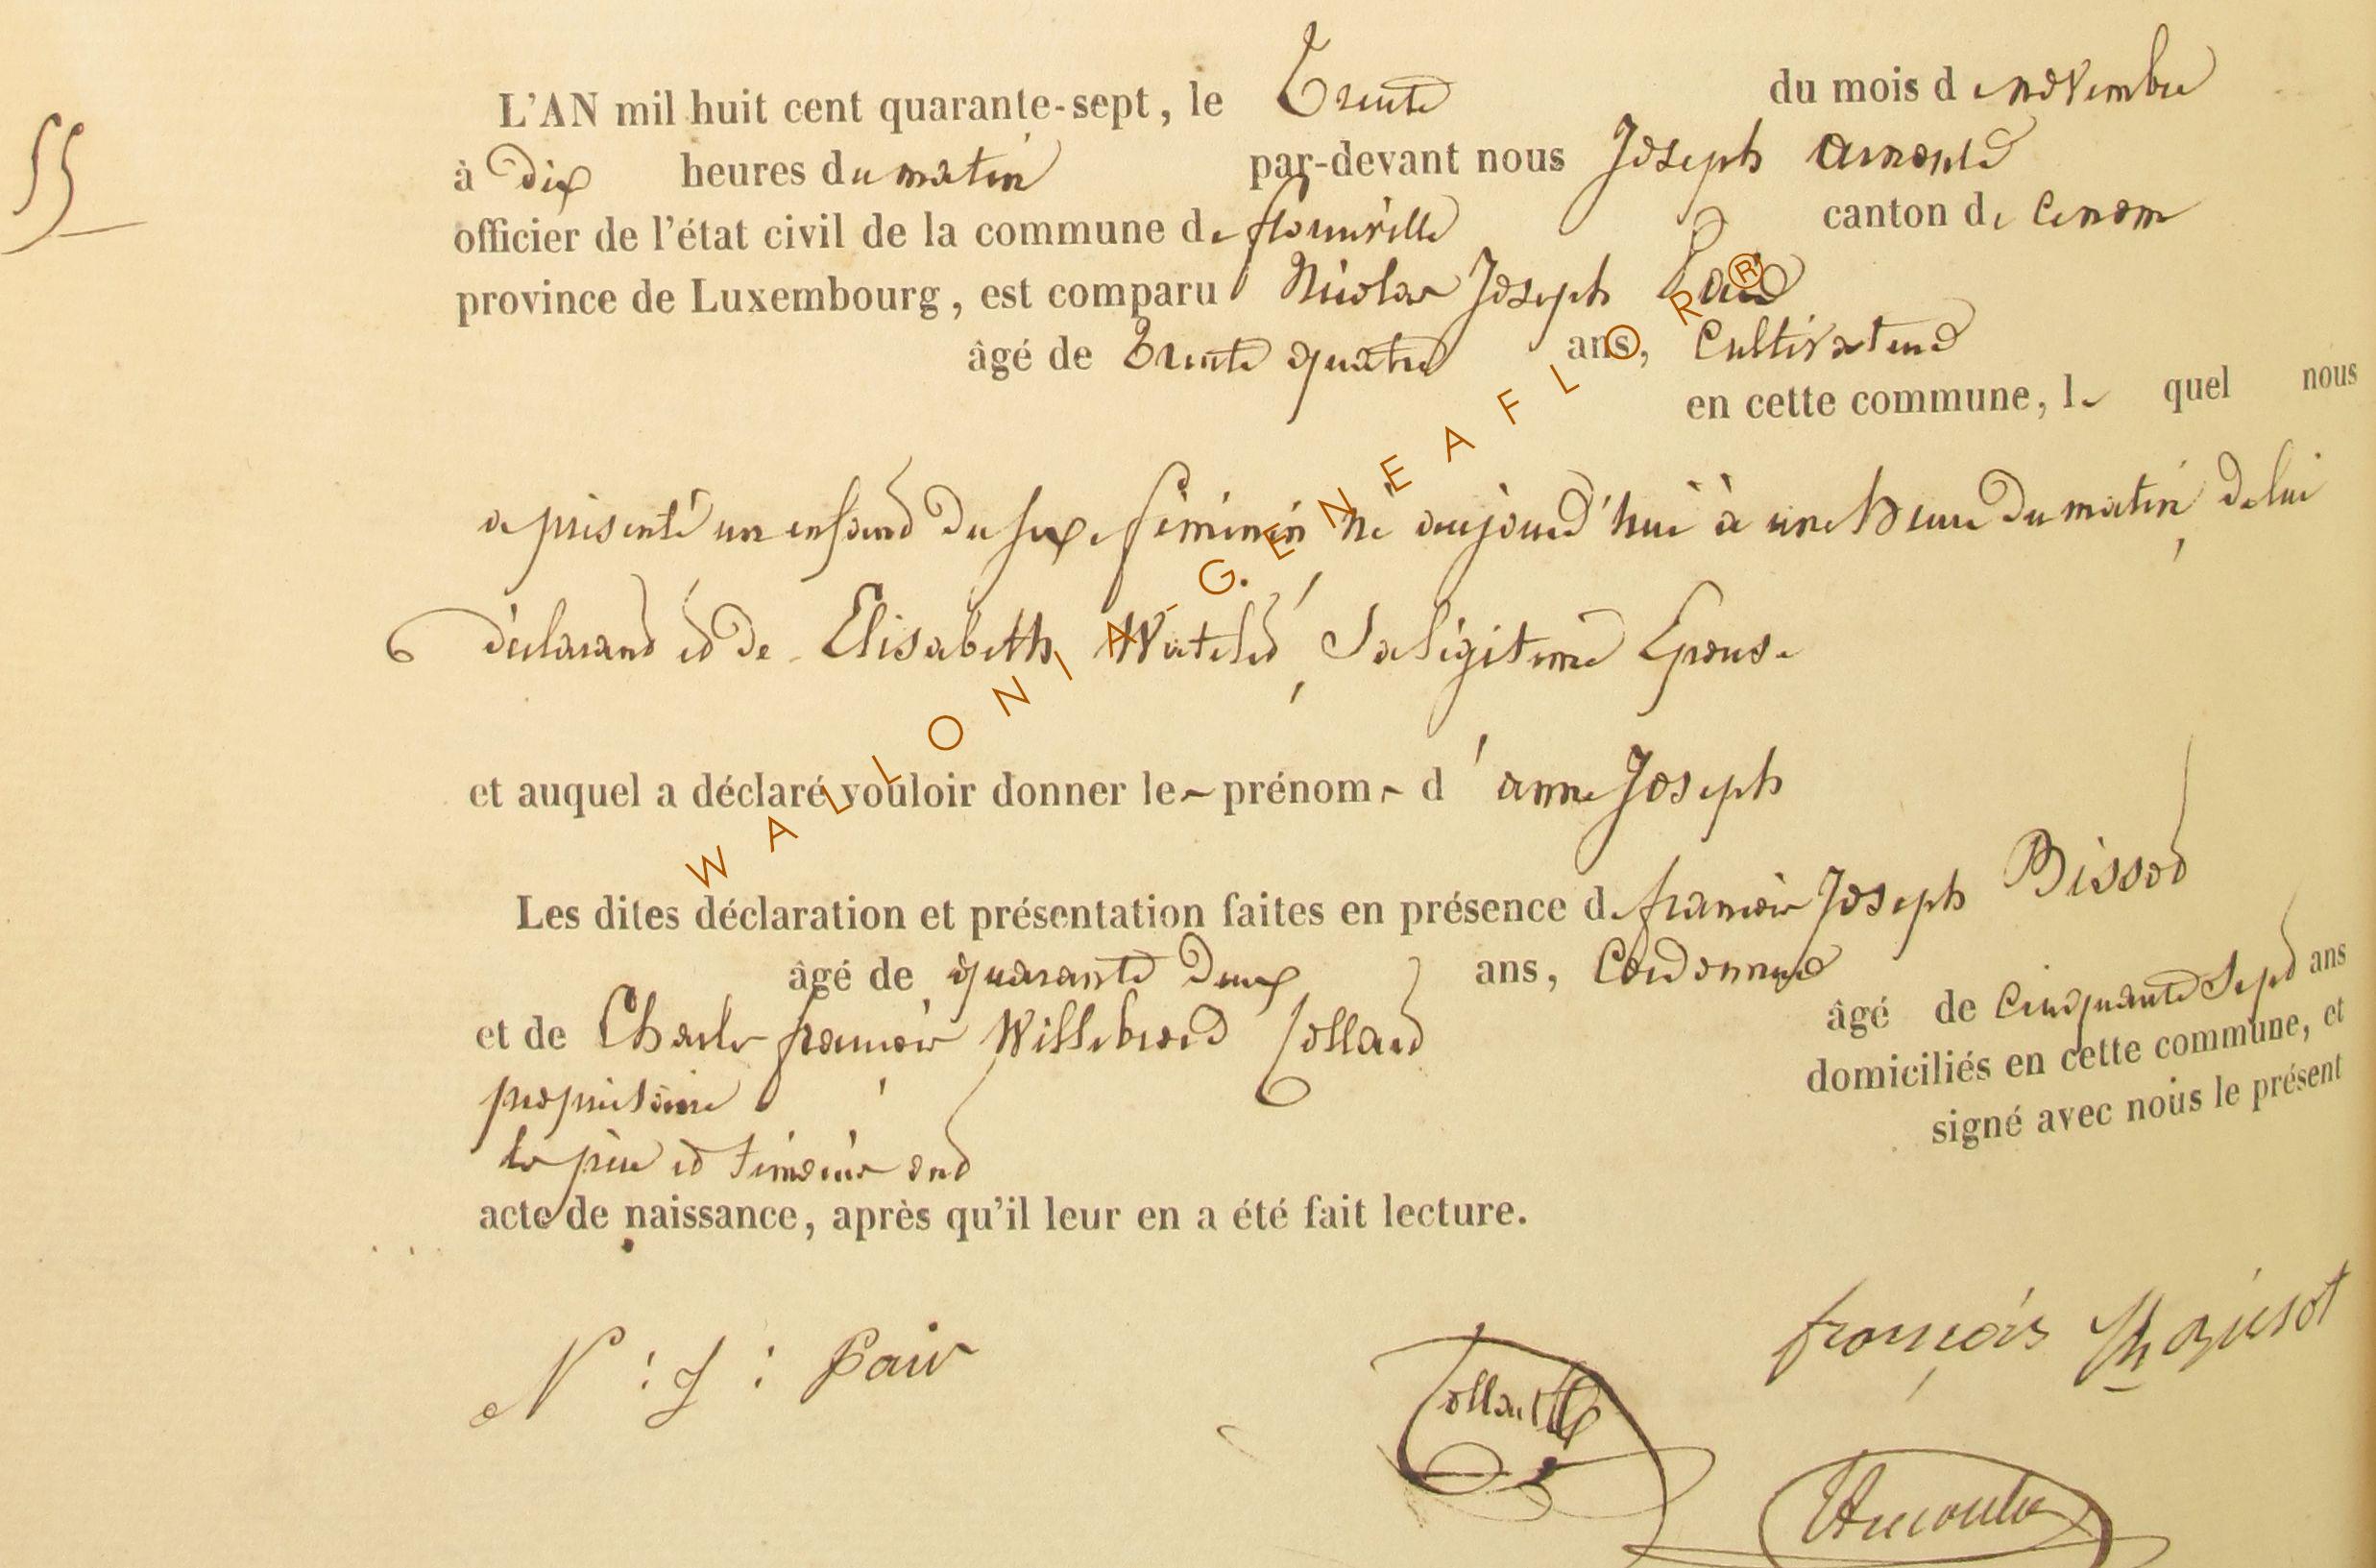 55
L'AN mil huit cent quarante-sept, le Trente du mois de novembre
à dix heures du matin par-devant nous Joseph arnould
officier de l'état civil de la commune de flamierge canton de
province de Luxembourg, est comparu Nicolas Joseph
âgé de Trente quatre ans, Cultivateur
en cette commune, le quel nous
a présenté un enfand du sexe féminin né aujourd'hui à une heure du matin, de lui
déclarand et de Elisabeth Watelet, Sa légitime Epouse
et auquel a déclaré vouloir donner les prénoms d'anne Joseph
Les dites déclaration et présentation faites en présence de françois Joseph
âgé de quarante deux ans, Cordonnier
et de Charles françois Willebrord Collard âgé de Cinquante Sept ans
propriétaire domiciliés en cette commune, et
les père et témoins ond signé avec nous le présent
acte de naissance, après qu'il leur en a été fait lecture.
N : J : françois
Collard
WALLONIA - GENEAFLOR®